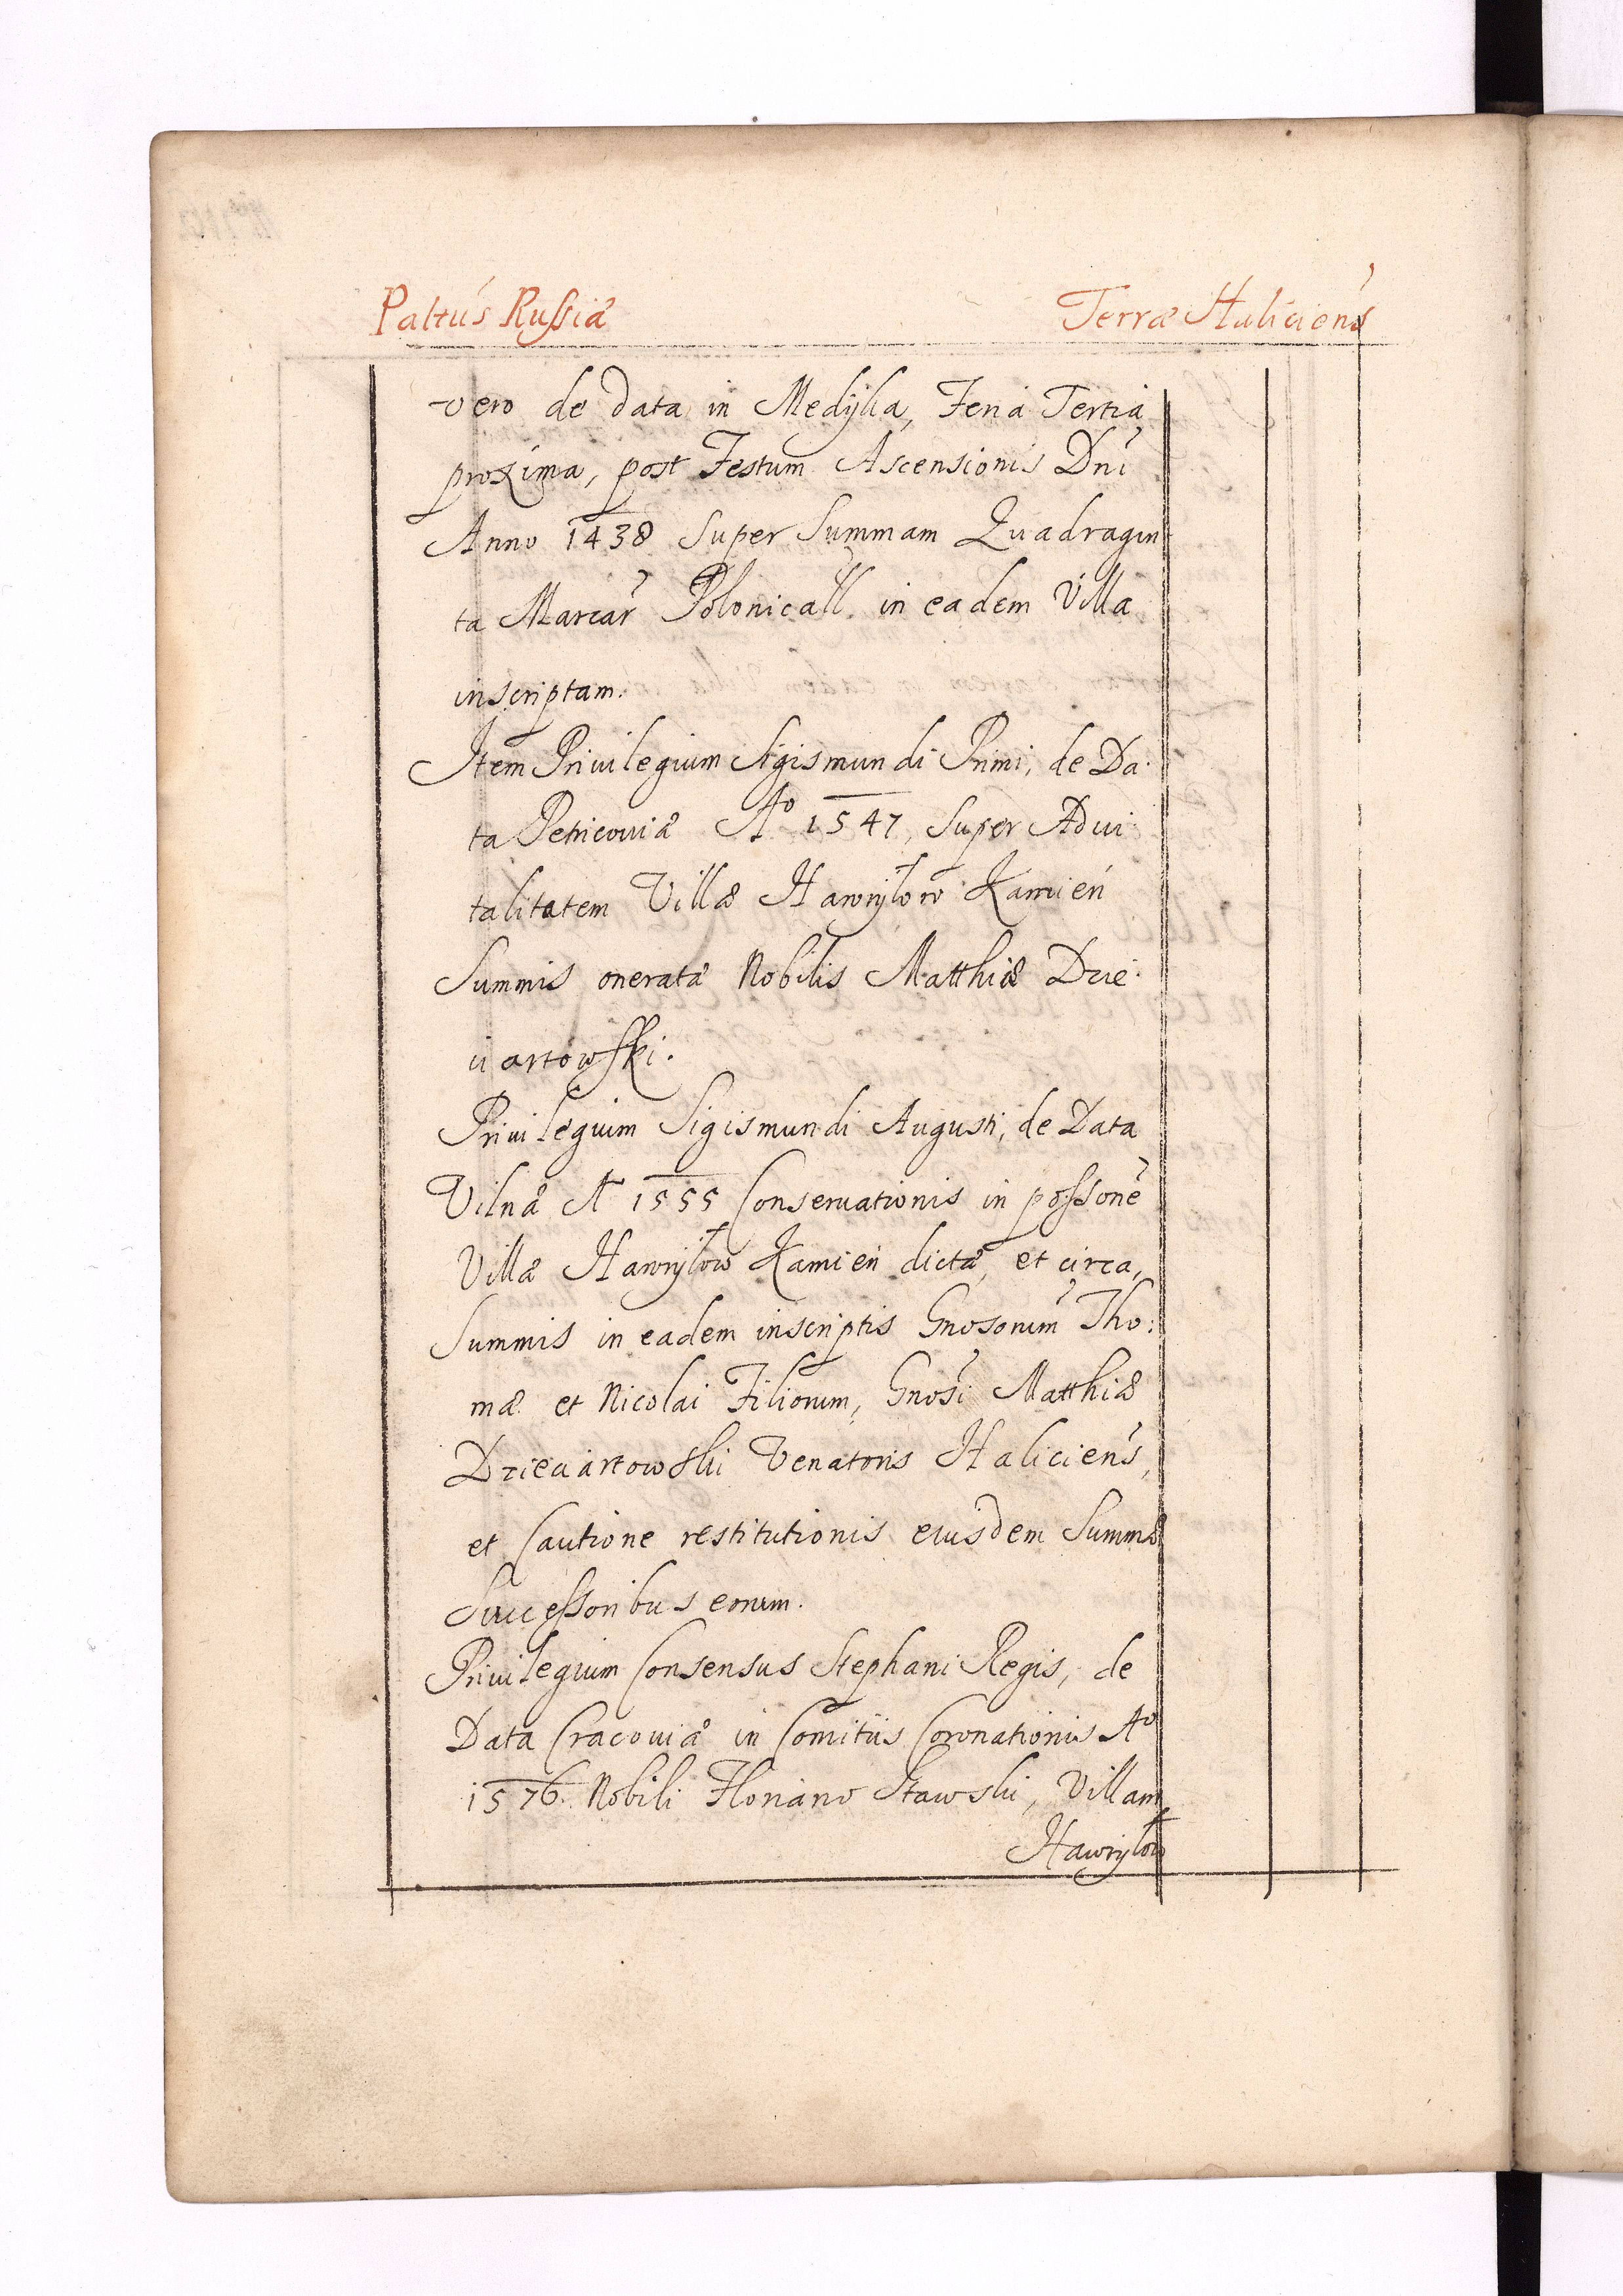 Paltus Russiæ Terræ Haliciens
vero de data in Medijka, Feria Tertia
proxima, post Festum Ascensionis Dni
Anno 1438 Super Summam Quadragin
ta Marcar Polonicall in eadem Villa
inscriptam.
Item Privilegium Sigismundi Primi, de Da
ta Petricoviæ Aº 1547, Super Advi
talitatem Villæ Hawryłow Kamień
Summis oneratæ Nobilis Matthiæ Dzie
ciartowski.
Privilegium Sigismundi Augusti, de Data
Vilnæ Aº 1555 Conservationis in possone
Villæ Hawryłow Kamień dictæ, et circa
Summis in eadem inscriptis Gnosorum Tho:
mæ et Nicolai Filiorum, Gnosi Matthiæ
Dzieciartowski Venatoris Haliciens,
et Cautione restitutionis eiusdem Summæ
Successoribus eorum.
Privilegium Consensus Stephani Regis, de
Data Cracoviæ in Comitiis Coronationis Aº
1576. Nobili Floriano Stawski, Villam
Hawryłow